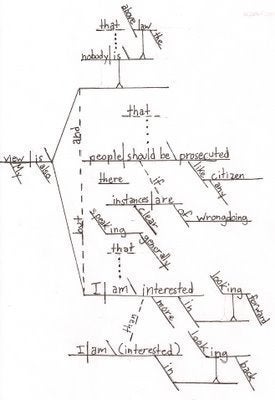 that
above
law
the
nobody is
and
that
people should be prosecuted
like
citizen
any
there
if
view is
My
also
instances are
clear
of
wrongdoing
speaking
generally
but
that
I am interested
more
in
looking
forward
than
I am (interested)
in
looking
back